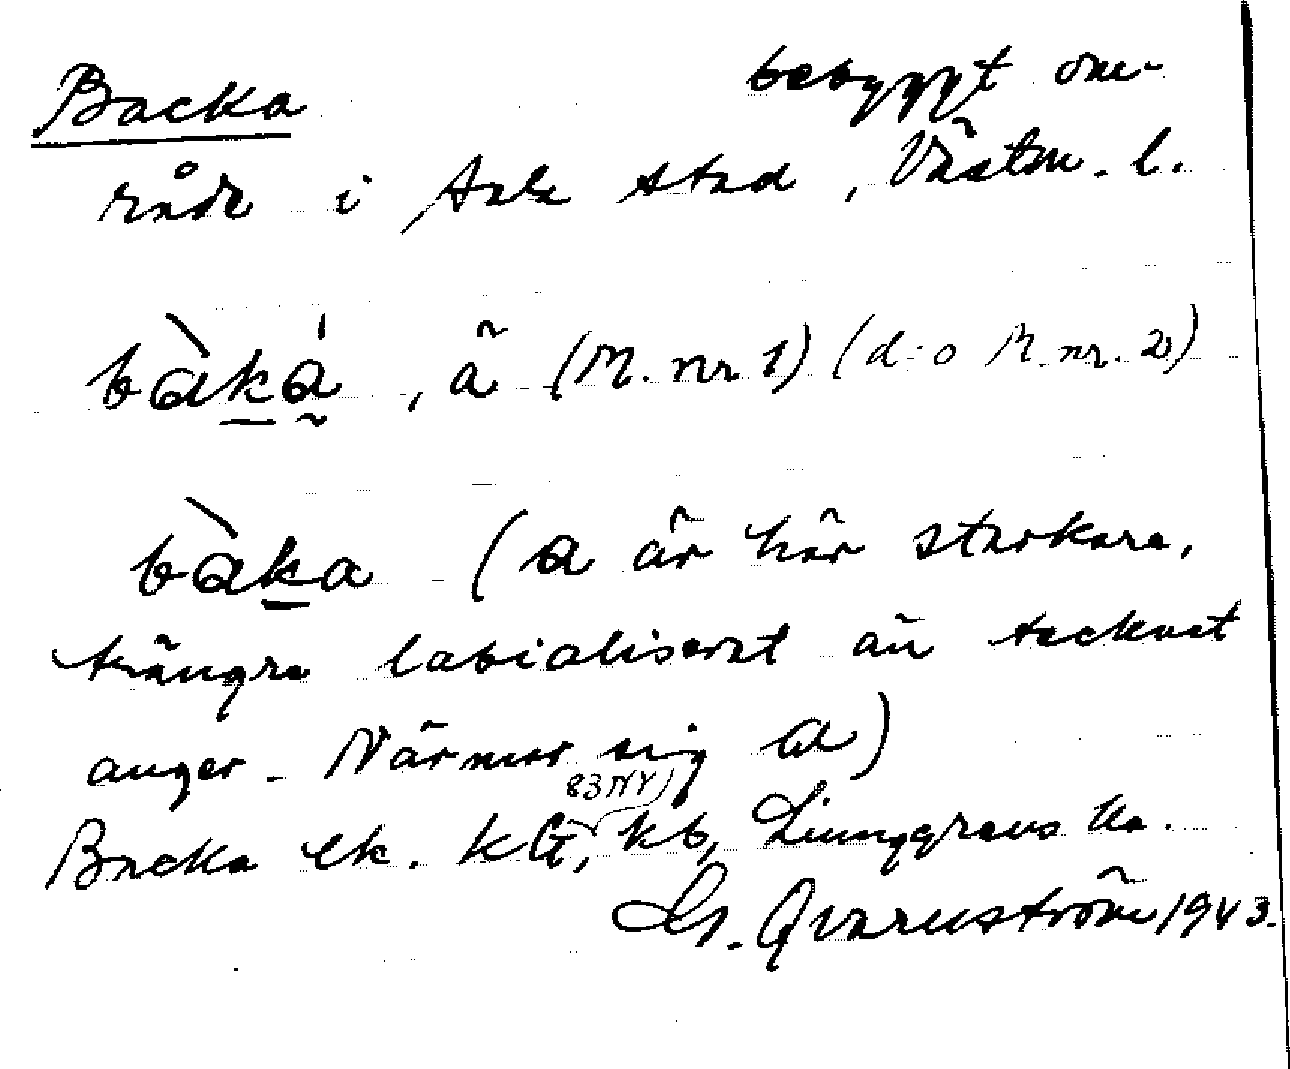 Backa bebyggt om-
råde i Sala stad, Västm. l.
bàká, ä (M. nr 1) (d:o M. nr. 2)
bàka (a är här starkare,
trängre labialiserat än tecknet
anger. Närmar sig a)
83 NV
Backa ek. kG, kb, Ljunggrens ka.
G. Qvarnström 1943.